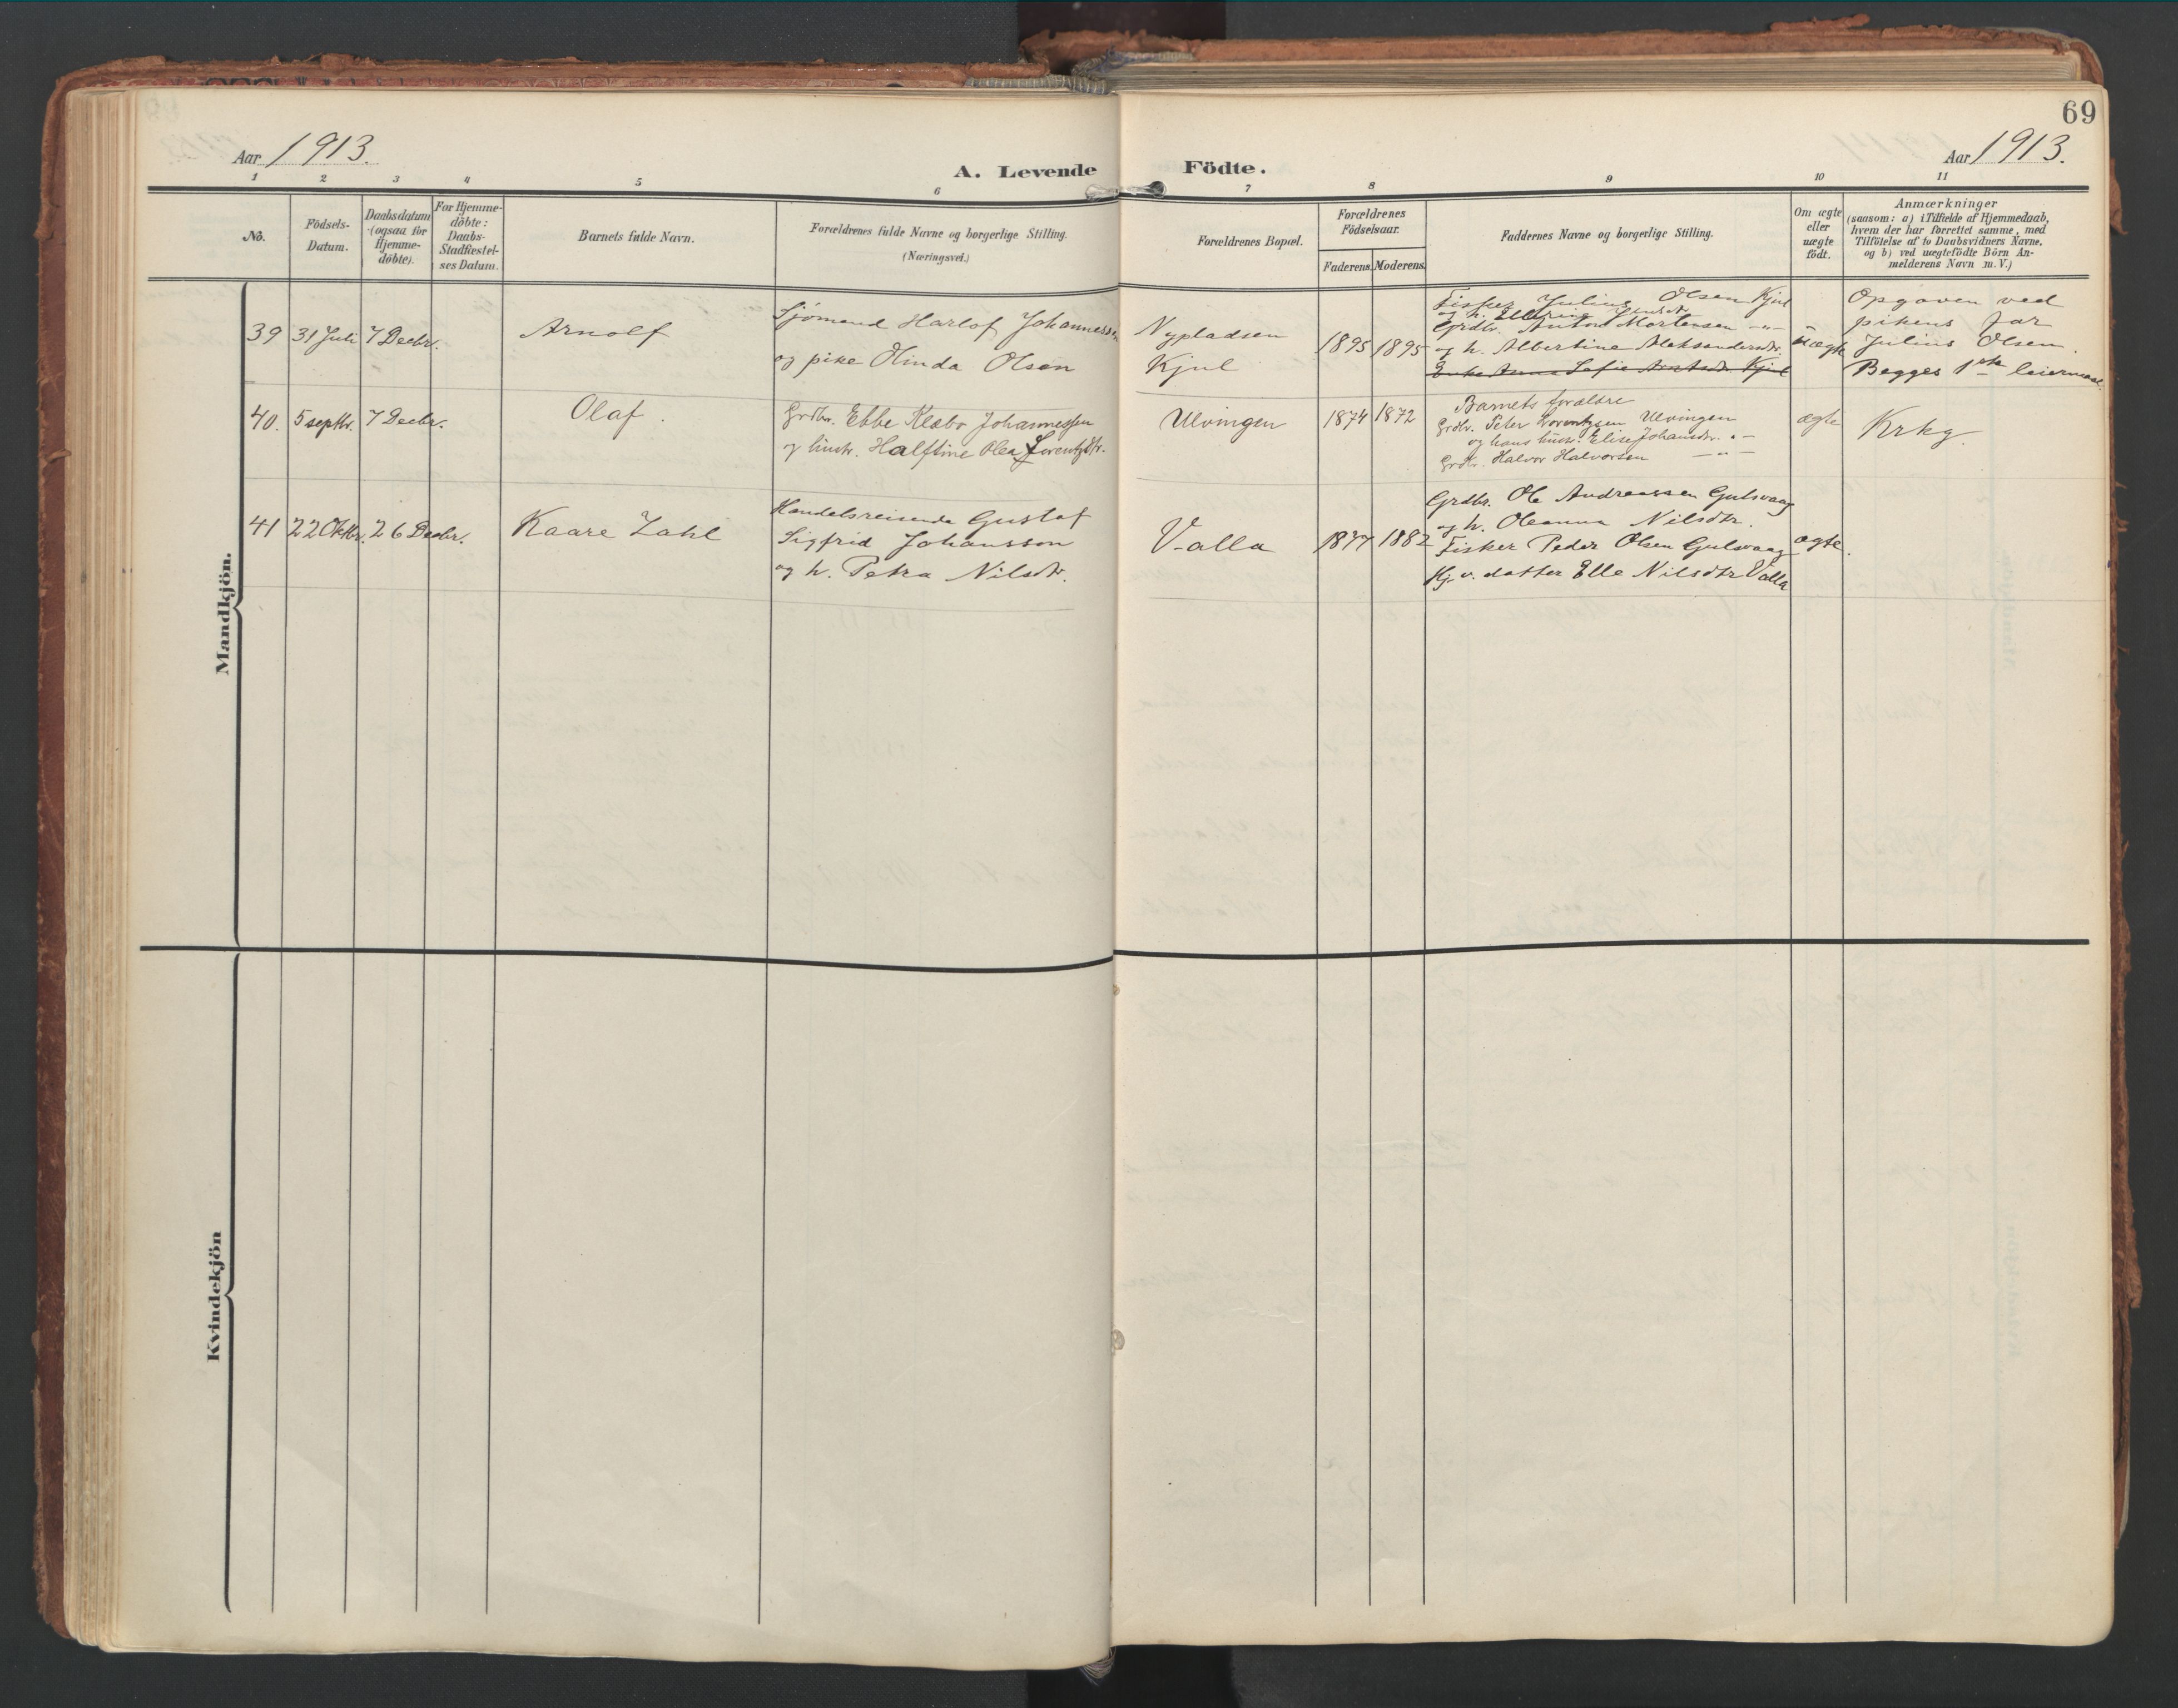 69
Aar 1913.
A. Levende Födte.
Aar 1913.
1 2 3 4 5 6 7 8 9 10 11
No.
Födsels-
Datum.
Daabsdatum
(ogsaa for
Hjemme-
döbte).
For Hjemme-
döbte:
Daabs-
Stadfæstel-
ses Datum.
Barnets fulde Navn.
Forældrenes fulde Navne og borgerlige Stilling.
(Næringsvei.)
Forældrenes Bopæl.
Forældrenes
Födselsaar.
Faderens. Moderens.
Faddernes Navne og borgerlige Stilling.
Om ægte
eller
uægte
födt.
Anmærkninger
(saasom: a) i Tilfælde af Hjemmedaab,
hvem der har forrettet samme, med
Tilföielse af to Daabsvidners Navne,
og b) ved uægtefödte Börn An-
melderens Navn m. V.)
Mandkjön.
39
31 Juli
7 Decbr.
Arnolf
Sjömand Harlof Johannessen
og pike Olinda Olsen
Nypladsen
Kjul
1895
1895
Fisker Julius Olsen Kjul
og h.
Grdbr. Anton Mortensen -"-
og h. Albertine Aleksandersdtr.
Enke Anna Sofie Kjul
uægte
Opgaven ved
pikens far
Julius Olsen.
Begges 1ste leiermaal.
40.
5 septbr.
7 Decbr.
Olaf.
Grdbr. Ebbe Klæbo Johannessen
og hustr. Halftine Olea Lorentzdtr.
Ulvingen
1874
1872
Barnets forældre
Grdbr. Peter Lorentzsen Ulvingen
og hans hustr. Elise Johansdtr. -"-
Grdbr. Halvor Halvorsen -"-
ægte
Krkg.
41
22 Oktbr.
26 Decbr.
Kaare Zahl
Handelsreisende Gustaf
Sigfrid Johansson
og h. Petra Nilsdtr.
Valla
1877
1882
Grdbr. Ole Andreassen Gulsvaag
og h. Oleanna Nilsdtr.
Fisker Peder Olsen Gulsvaag
Hj. v. datter Elle Nilsdtr Valla
ægte.
Kvindekjön